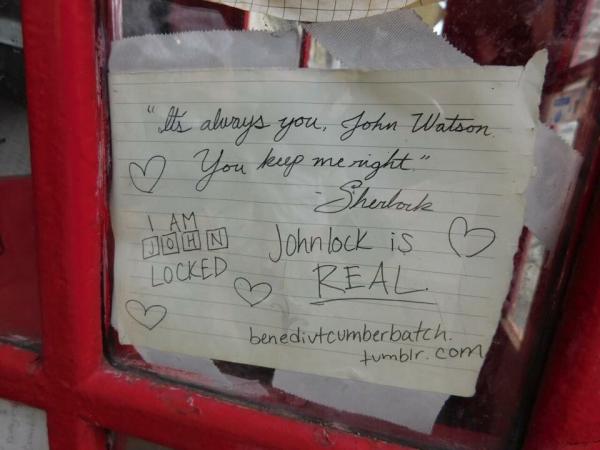 "It's always you, John Watson.
You keep me right."
- Sherlock
I AM
JOHN
LOCKED
Johnlock is
REAL.
benedivtcumberbatch.
tumblr.com